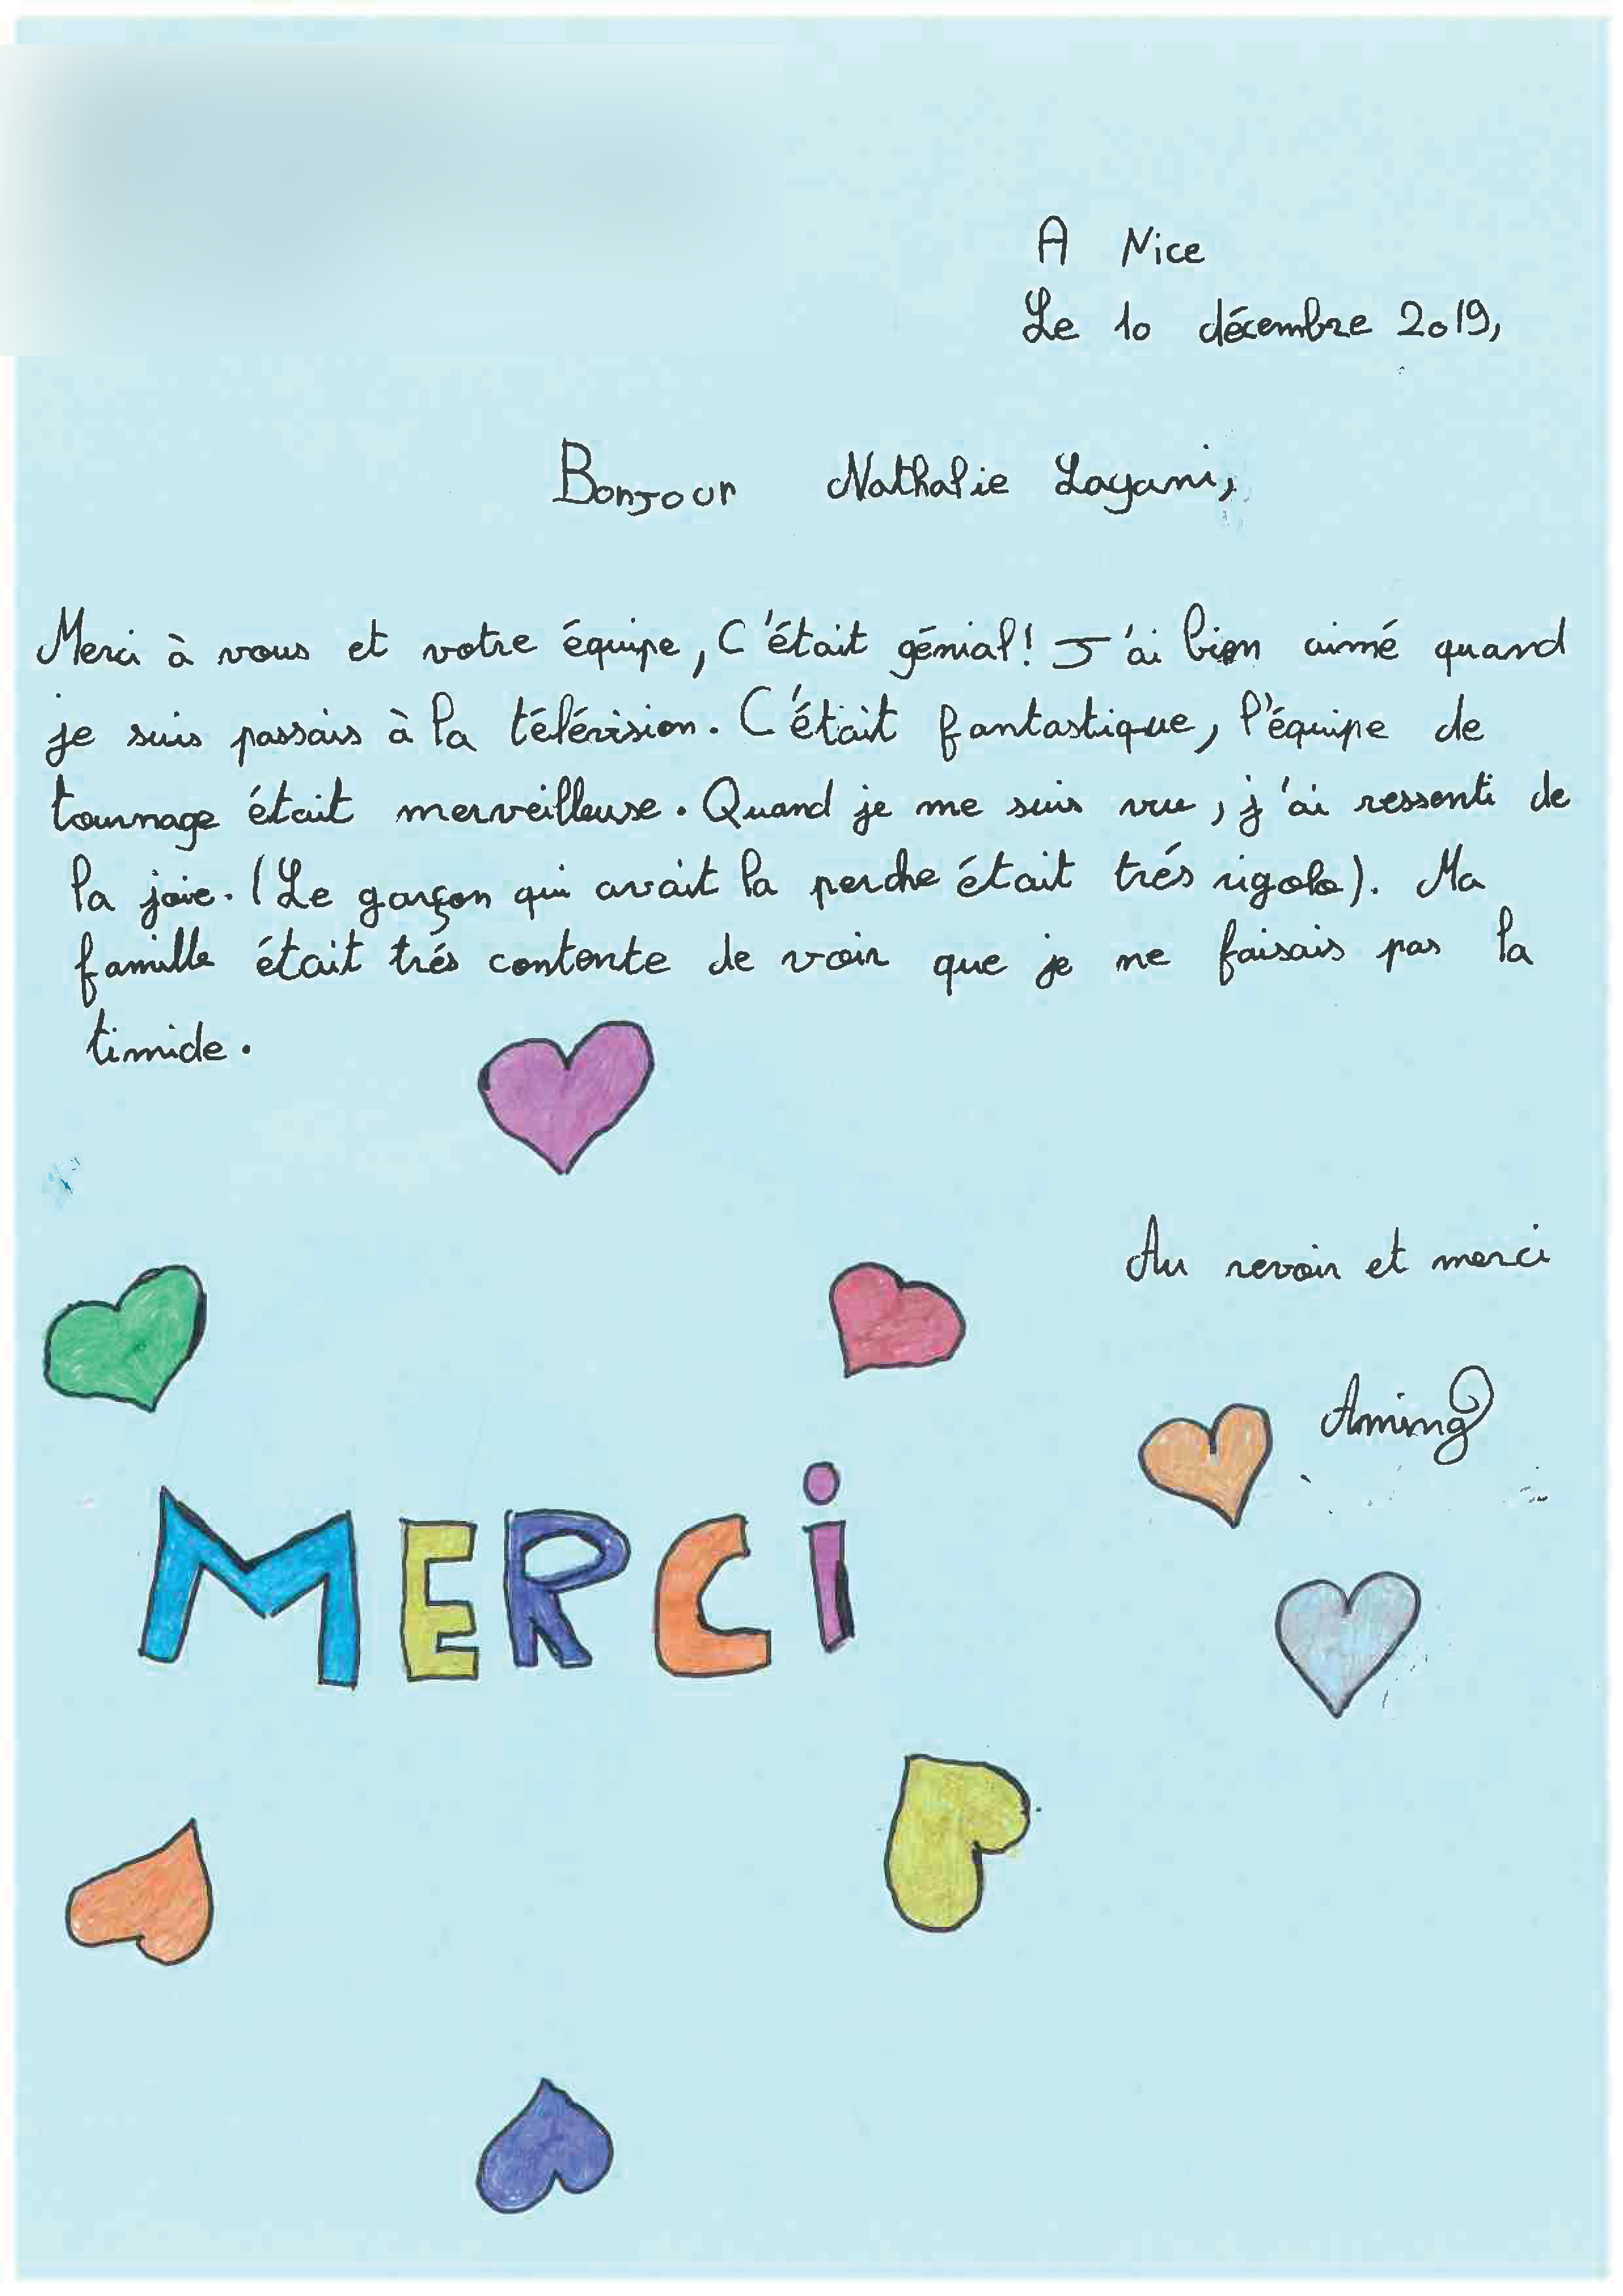 A Nice
Le 10 décembre 2019,
Bonjour Nathalie Layani,
Merci à vous et votre équipe, C'était génial! J'ai bien aimé quand
je suis passais à la télévision. C'était fantastique, l'équipe de
tournage était merveilleuse. Quand je me suis vue, j'ai ressenti de
la joie. (Le garçon qui avait la perche était trés rigolo). Ma
famille était trés contente de voir que je ne faisais pas la
timide.
Au revoir et merci
MERCi